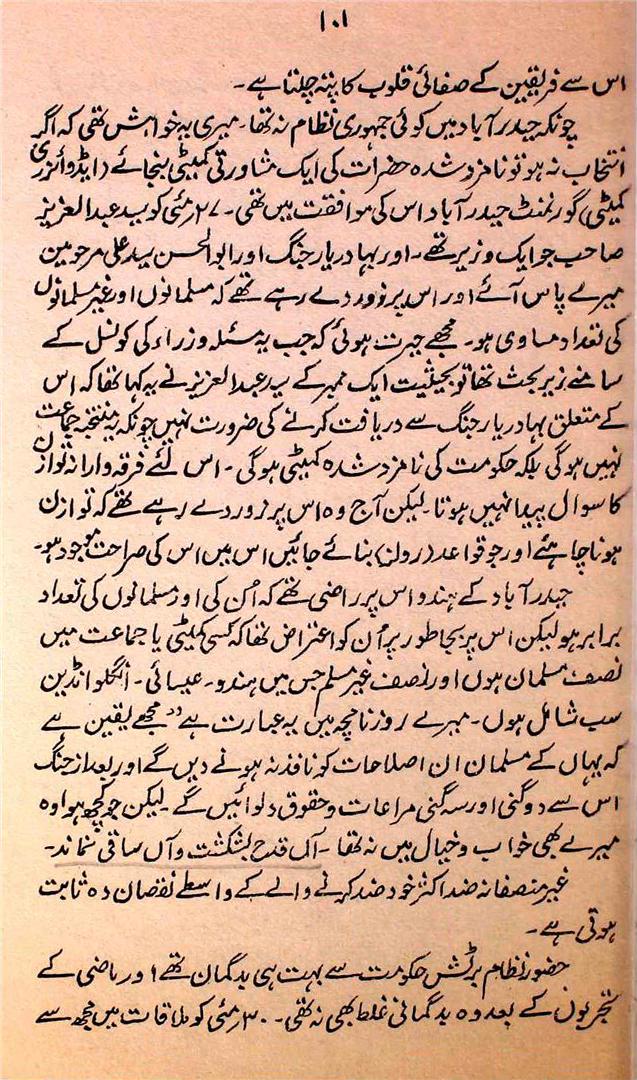 ۱۰۱
اس سے فریقین کے صفائی قلوب کا پتہ چلتا ہے۔
چونکہ حیدرآباد میں کوئی جمہوری نظام نہ تھا۔ میری یہ خواہش تھی کہ اگر
انتخاب نہ ہو تو نامزد شدہ حضرات کی ایک مشاورتی کمیٹی بنجائے (ایڈوائزری
کمیٹی) گورنمنٹ حیدرآباد اس کی موافقت میں تھی۔ ۲۷ مئی کو سید عبدالعزیز
صاحب جو ایک وزیر تھے۔ اور بہادر یار جنگ اور ابوالحسن سید علی مرحومین
میرے پاس آئے اور اس پر زور دے رہے تھے کہ مسلمانوں اور غیر مسلمانوں
کی تعداد مساوی ہو۔ مجھے حیرت ہوئی کہ جب یہ مسئلہ وزراء کی کونسل کے
سامنے زیر بحث تھا تو بحیثیت ایک ممبر کے سید عبدالعزیز نے یہ کہا تھا کہ اس
کے متعلق بہادر یار جنگ سے دریافت کرنے کی ضرورت نہیں چونکہ یہ منتخبہ جماعت
نہیں ہوگی بلکہ حکومت کی نامزد شدہ کمیٹی ہوگی۔ اس لئے فرقہ وارانہ توازن
کا سوال پیدا نہیں ہوتا۔ لیکن آج وہ اس پر زور دے رہے تھے کہ توازن
ہونا چاہئے اور جو قواعد (رولز) بنائے جائیں اس میں اس کی صراحت موجود ہو۔
حیدرآباد کے ہندو اس پر راضی تھے کہ اُن کی اور مسلمانوں کی تعداد
برابر ہو لیکن اس پر بجا طور پر اُن کو اعتراض تھا کہ کسی کمیٹی یا جماعت میں
نصف مسلمان ہوں اور نصف غیر مسلم جس میں ہندو۔ عیسائی۔ انگلو انڈین
سب شامل ہوں۔ میرے روزنامچہ میں یہ عبارت ہے "مجھے یقین ہے
کہ یہاں کے مسلمان ان اصلاحات کو نافذ نہ ہونے دیں گے اور بعد از جنگ
اس سے دوگنی اور سہ گنی مراعات و حقوق دلوائیں گے۔ لیکن جو کچھ ہوا وہ
میرے بھی خواب و خیال میں نہ تھا۔ آں قدح بشکست و آں ساقی نماند۔
غیر منصفانہ ضد اکثر خود ضد کرنے والے کے واسطے نقصان دہ ثابت
ہوتی ہے۔
حضور نظام برٹش حکومت سے بہت ہی بدگمان تھے اور ماضی کے
تجربوں کے بعد وہ بدگمانی غلط بھی نہ تھی۔ ۳۰ مئی کو ملاقات میں مجھ سے